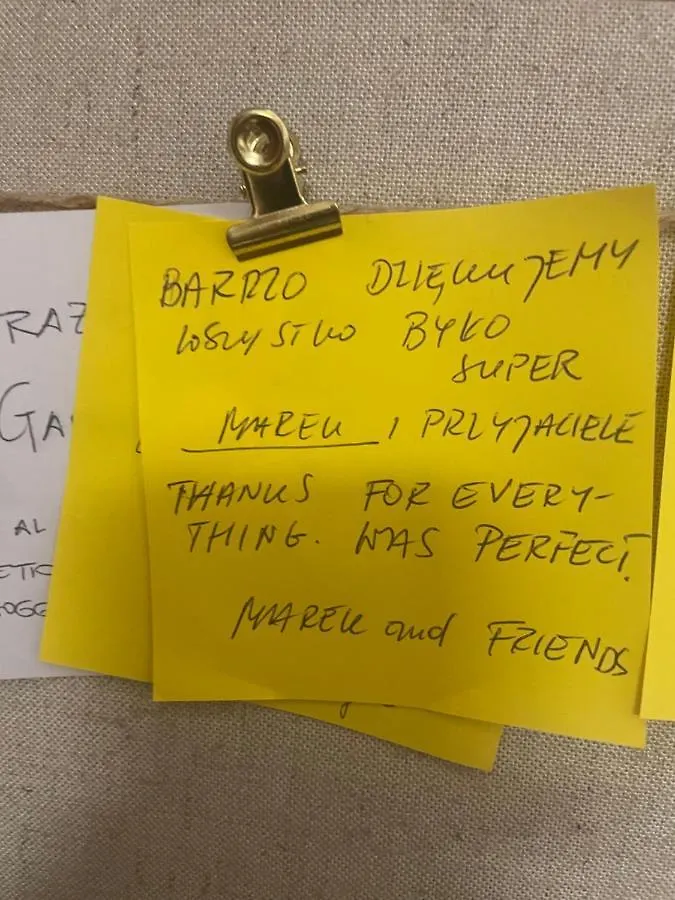 RAZ
GA
AL
ETIC
OGGE
BARDZO DZIĘKUJEMY
WSZYSTKO BYŁO
SUPER
MAREK I PRZYJACIELE
THANKS FOR EVERY-
THING. WAS PERFECT!
MAREK and FRIENDS